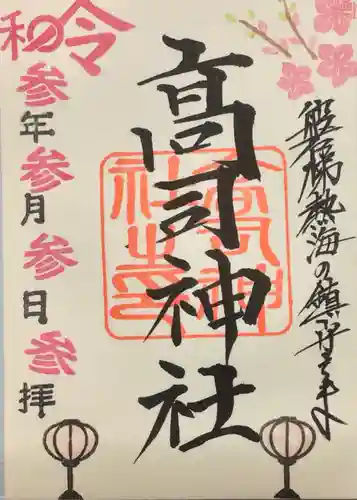 磐梯熱海の鎮守さま
高司神社
令和
参年
参月
参日
参拝